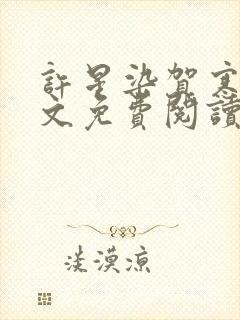 許星染賀寒
文免費閱讀
淡漠涼